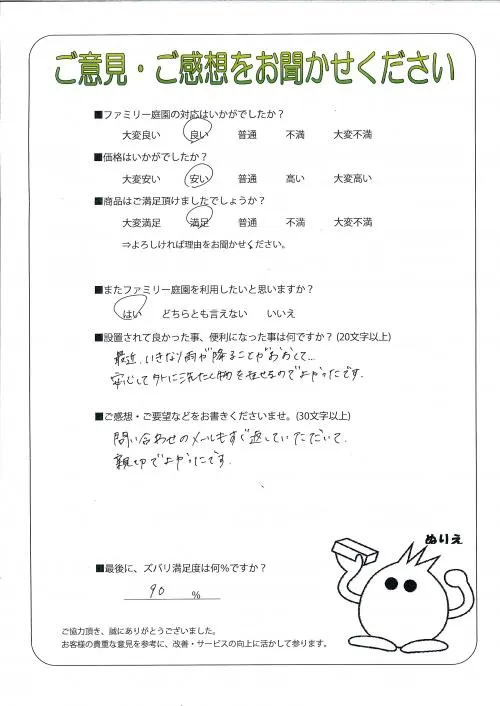 ご意見・ご感想をお聞かせください
■ファミリー庭園の対応はいかがでしたか？
大変良い 良い 普通 不満 大変不満
■価格はいかがでしたか？
大変安い 安い 普通 高い 大変高い
■商品はご満足頂けましたでしょうか？
大変満足 満足 普通 不満 大変不満
⇒よろしければ理由をお聞かせください。
■またファミリー庭園を利用したいと思いますか？
はい どちらとも言えない いいえ
■設置されて良かった事、便利になった事は何ですか？(20文字以上)
最近、いきなり雨が降ることがおおくて…
安心して外に洗たく物を干せるのでよかったです.
■ご感想・ご要望などをお書きくださいませ。(30文字以上)
問い合わせのメールもすぐ返していただいて、
親切でよかったです.
ぬりえ
■最後に、ズバリ満足度は何％ですか？
90 %
ご協力頂き、誠にありがとうございました。
お客様の貴重な意見を参考に、改善・サービスの向上に活かして参ります。